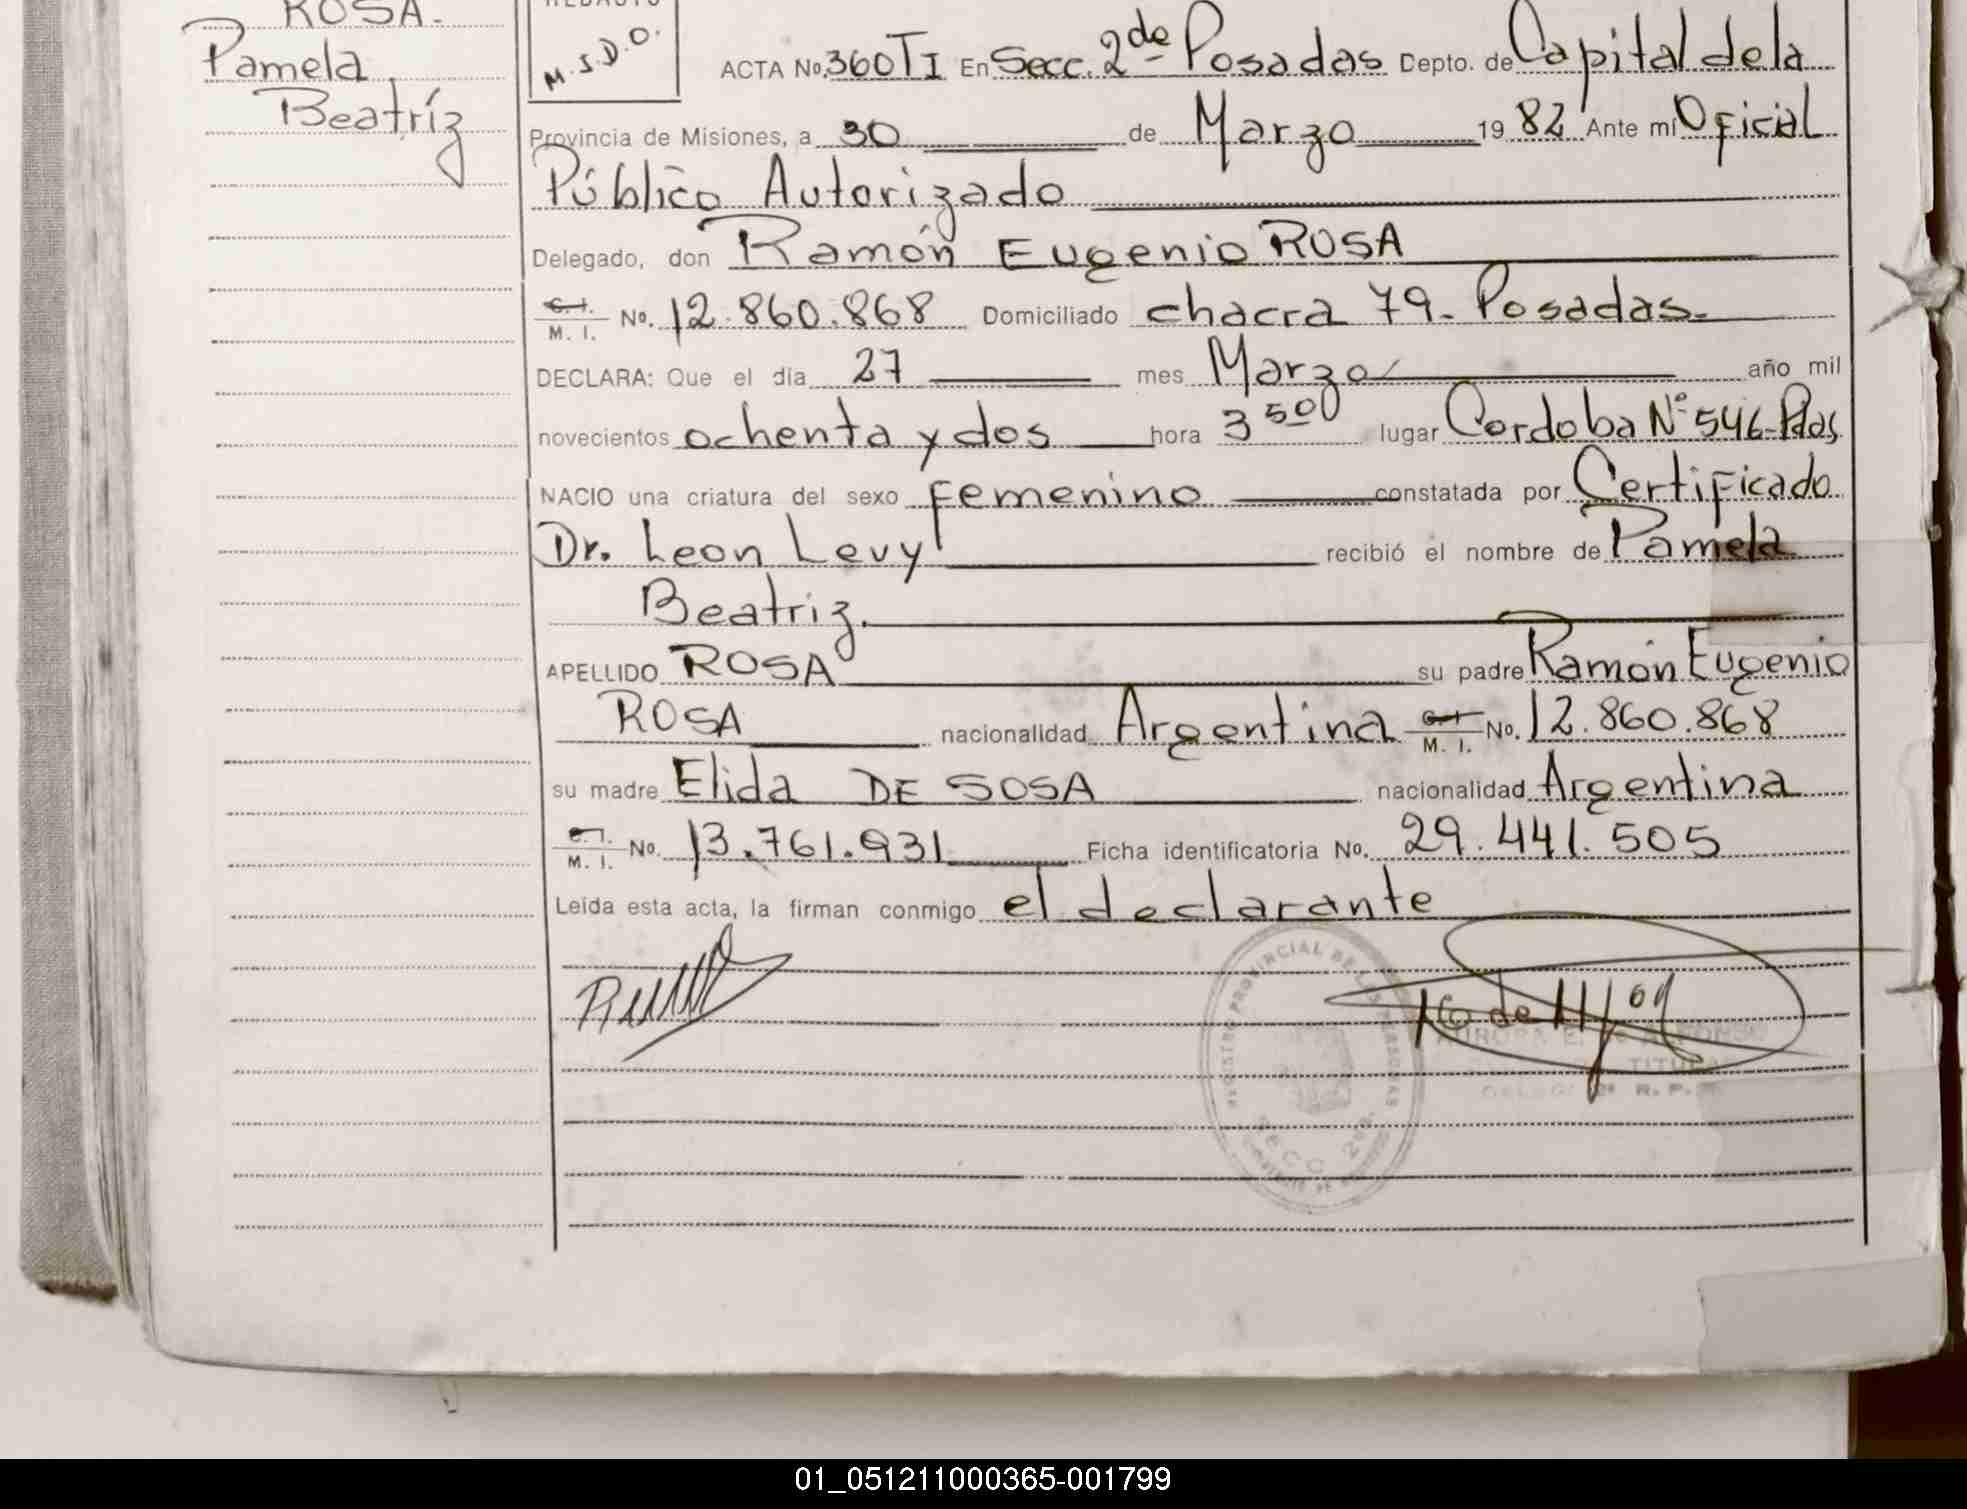 ROSA.
Pamela
Beatríz
REDACTO
M.S.D.O.
ACTA No. 360 TI En Secc. 2da Posadas Depto. de Capital de la
Provincia de Misiones, a 30 de Marzo 1982 Ante mí Oficial
Público Autorizado
Delegado, don Ramón Eugenio ROSA
C.I. M. I. No. 12.860.868 Domiciliado chacra 79- Posadas.
DECLARA: Que el día 27 mes Marzo año mil
novecientos ochenta y dos hora 3 500 lugar Cordoba Nº 546-Pdas.
NACIO una criatura del sexo femenino constatada por Certificado
Dr. Leon Levy recibió el nombre de Pamela
Beatriz.
APELLIDO ROSA su padre Ramón Eugenio
ROSA nacionalidad Argentina C.I. M. I. No. 12.860.868
su madre Elida DE SOSA nacionalidad Argentina
C.I. M. I. No. 13.761.931 Ficha identificatoria No. 29.441.505
Leída esta acta, la firman conmigo el declarante
REGISTRO PROVINCIAL DE LAS PERSONAS
SECC. 2da.
AURORA E. de
TITULAR
R. P.
01_051211000365-001799